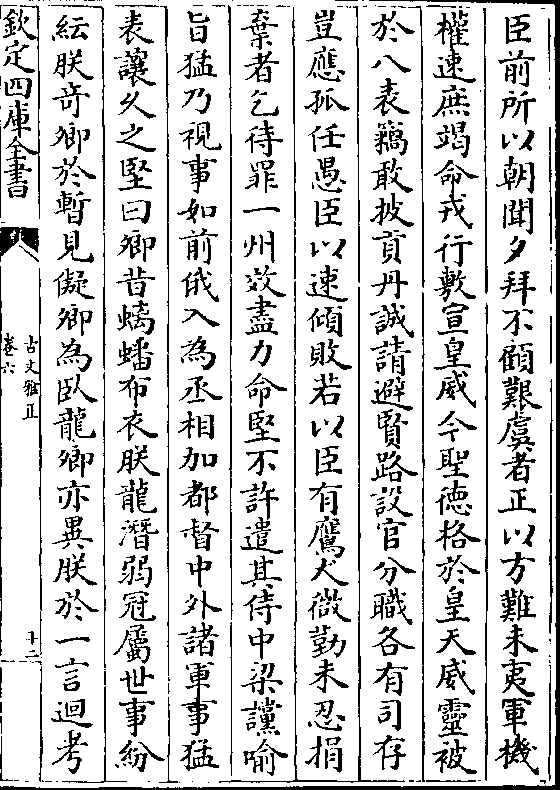 臣前所以朝聞夕拜不顧艱虞者正以方難未夷軍機
權速庶竭命戎行敷宣皇威今聖德格於皇天威靈被
於八表竊敢披貢丹誠請避賢路設官分職各有司存
豈應孤任愚臣以速傾敗若以臣有鷹犬微勤未忍捐
棄者乞待罪一州效盡力命堅不許遣其侍中梁讜喻
旨猛乃視事如前俄入為丞相加都督中外諸軍事猛
表讓久之堅曰卿昔螭蟠布衣朕龍潛弱冠屬世事紛
紜朕竒卿於暫見儗卿為臥龍卿亦異朕於一言迴考
欽定四庫全書
古文雅正
卷六
十二